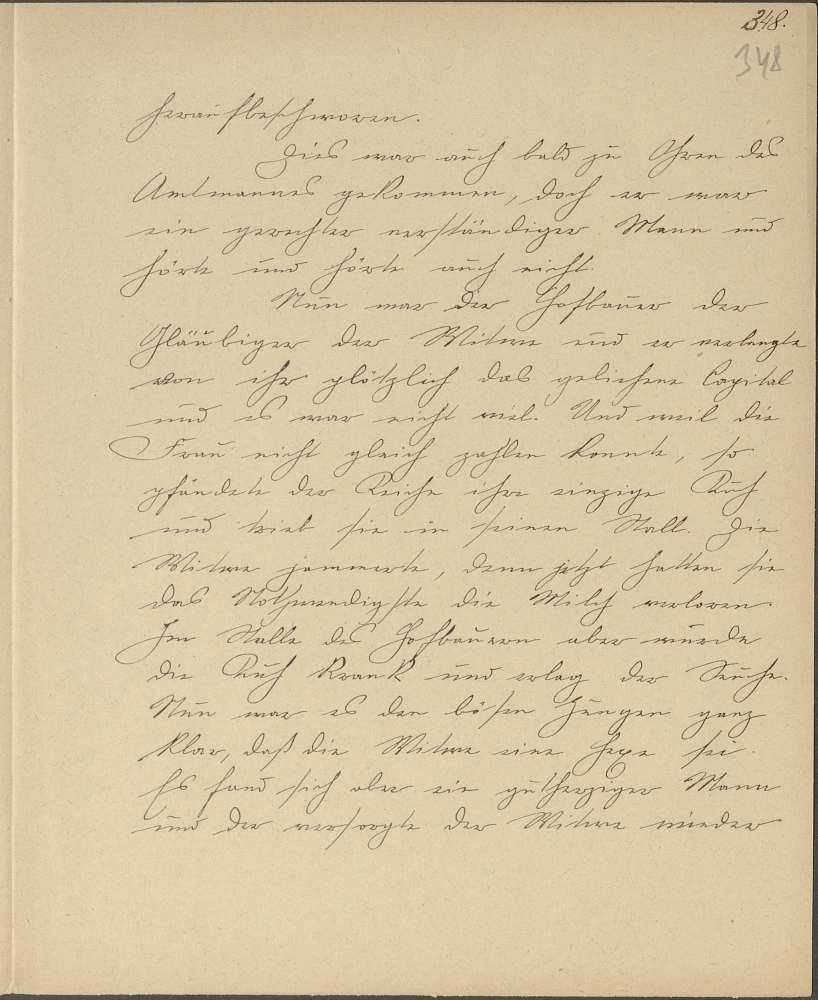 348.
348
heraufbeschworen.
Dies war auch bald zu Ohren des
Amtmannes gekommen, doch er war
ein gerechter verständiger Mann und
hörte und hörte auch nicht.
Nun war der Hofbauer der
Gläubiger der Witwe und er verlangte
von ihr plötzlich das geliehene Capital
und es war nicht viel. Und weil die
Frau nicht gleich zahlen konnte, so
pfändete der Reiche ihre einzige Kuh
und trieb sie in seinen Stall. Die
Witwe jammerte, denn jetzt hatten sie
das Nothwendigste die Milch verloren.
Im Stalle des Hofbauern aber wurde
die Kuh krank und erlag der Seuche.
Nun war es den bösen Zungen ganz
klar, daß die Witwe eine Hexe sei.
Es fand sich aber ein gutherziger Mann
und der versorgte der Witwe wieder